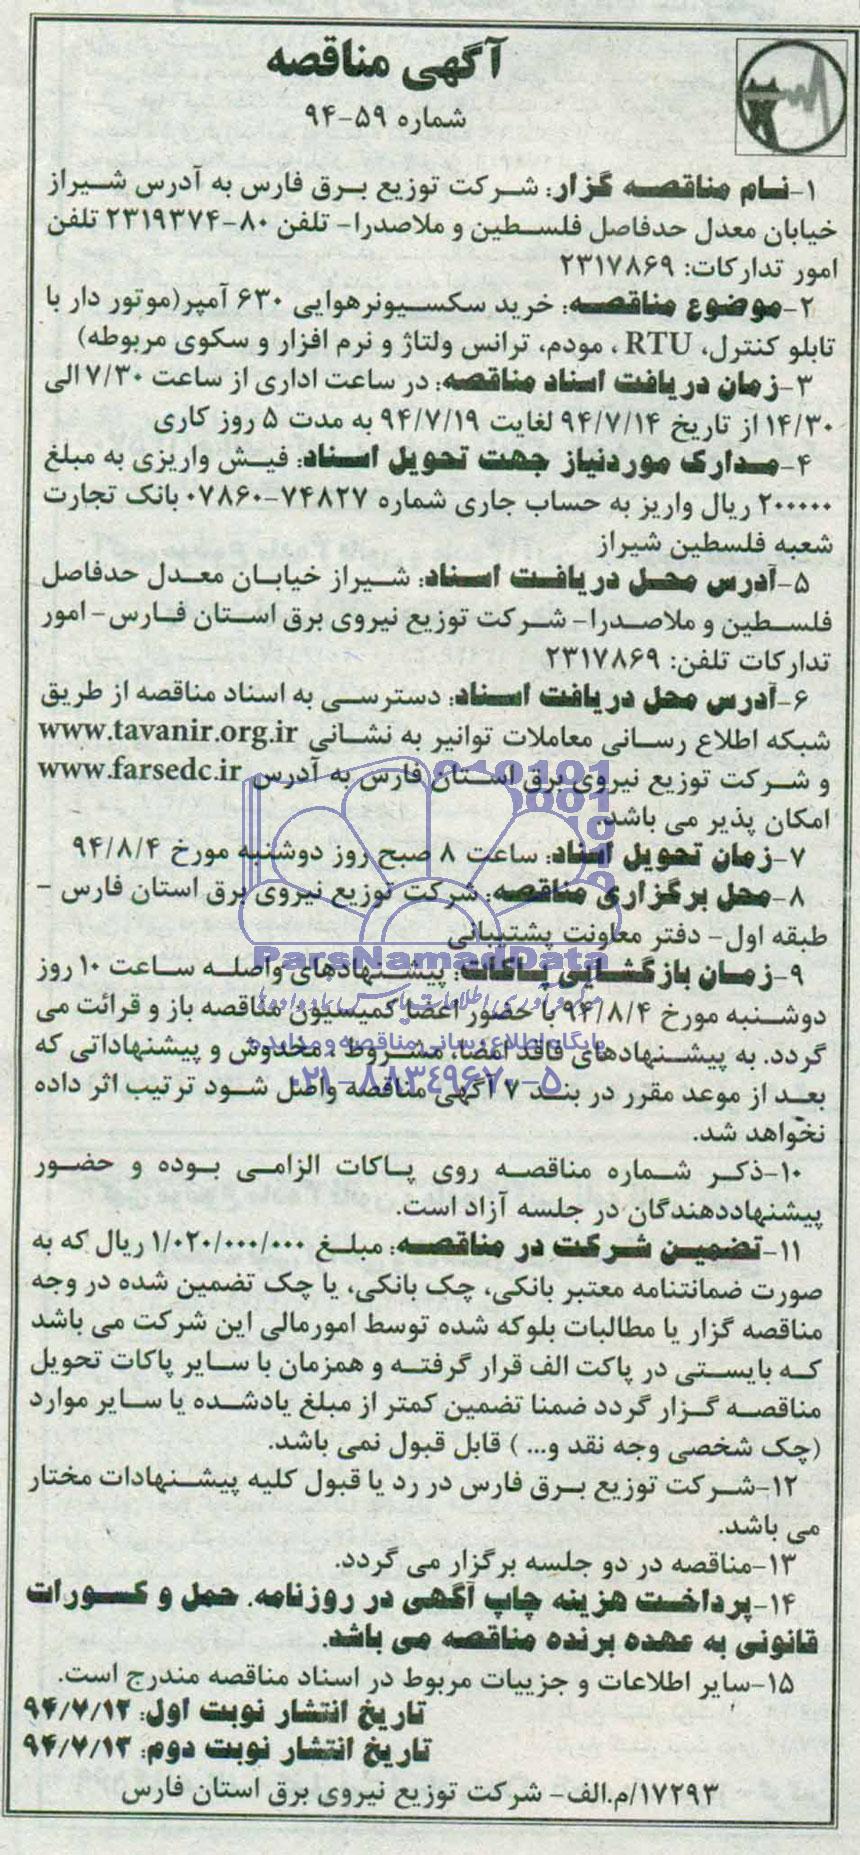 آگهی مناقصه
شماره ۵۹-۹۴
۱-نام مناقصه گزار: شرکت توزیع برق فارس به آدرس شیراز
خیابان معدل حدفاصل فلسطین و ملاصدرا- تلفن ۸۰-۲۳۱۹۳۷۴ تلفن
امور تدارکات: ۲۳۱۷۸۶۹
۲-موضوع مناقصه: خرید سکسیونرهوایی ۶۳۰ آمپر(موتور دار با
تابلو کنترل، RTU ، مودم، ترانس ولتاژ و نرم افزار و سکوی مربوطه)
۳-زمان دریافت اسناد مناقصه: در ساعت اداری از ساعت ۷/۳۰ الی
۱۴/۳۰ از تاریخ ۹۴/۷/۱۴ لغایت ۹۴/۷/۱۹ به مدت ۵ روز کاری
۴-مدارک موردنیاز جهت تحویل اسناد: فیش واریزی به مبلغ
۲۰۰۰۰۰ ریال واریز به حساب جاری شماره ۷۴۸۲۷-۰۷۸۶۰ بانک تجارت
شعبه فلسطین شیراز
۵-آدرس محل دریافت اسناد: شیراز خیابان معدل حدفاصل
فلسطین و ملاصدرا- شرکت توزیع نیروی برق استان فارس- امور
تدارکات تلفن: ۲۳۱۷۸۶۹
۶-آدرس محل دریافت اسناد: دسترسی به اسناد مناقصه از طریق
شبکه اطلاع رسانی معاملات توانیر به نشانی www.tavanir.org.ir
و شرکت توزیع نیروی برق استان فارس به آدرس www.farsedc.ir
امکان پذیر می باشد.
۷-زمان تحویل اسناد: ساعت ۸ صبح روز دوشنبه مورخ ۹۴/۸/۴
۸-محل برگزاری مناقصه: شرکت توزیع نیروی برق استان فارس -
طبقه اول- دفتر معاونت پشتیبانی
ParsNamadData
۹-زمان بازگشایی پاکات: پیشنهادهای واصله ساعت ۱۰ روز
دوشنبه مورخ ۹۴/۸/۴ با حضور اعضا کمیسیون مناقصه باز و قرائت می
پایگاه اطلاع رسانی مناقصه و مزایده
گردد. به پیشنهادهای فاقد امضا، مشروط ، مخدوش و پیشنهاداتی که
۰۲۱-۸۸۳۴۹۶۷۰-۵
بعد از موعد مقرر در بند ۷ آگهی مناقصه واصل شود ترتیب اثر داده
نخواهد شد.
۱۰-ذکر شماره مناقصه روی پاکات الزامی بوده و حضور
پیشنهاددهندگان در جلسه آزاد است.
۱۱-تضمین شرکت در مناقصه: مبلغ ۱/۰۲۰/۰۰۰/۰۰۰ ریال که به
صورت ضمانتنامه معتبر بانکی، چک بانکی، یا چک تضمین شده در وجه
مناقصه گزار یا مطالبات بلوکه شده توسط امورمالی این شرکت می باشد
که بایستی در پاکت الف قرار گرفته و همزمان با سایر پاکات تحویل
مناقصه گزار گردد ضمنا تضمین کمتر از مبلغ یادشده یا سایر موارد
(چک شخصی وجه نقد و... ) قابل قبول نمی باشد.
۱۲-شرکت توزیع برق فارس در رد یا قبول کلیه پیشنهادات مختار
می باشد.
۱۳-مناقصه در دو جلسه برگزار می گردد.
۱۴-پرداخت هزینه چاپ آگهی در روزنامه، حمل و کسورات
قانونی به عهده برنده مناقصه می باشد.
۱۵-سایر اطلاعات و جزییات مربوط در اسناد مناقصه مندرج است.
تاریخ انتشار نوبت اول: ۹۴/۷/۱۲
تاریخ انتشار نوبت دوم: ۹۴/۷/۱۳
۱۷۲۹۳/م.الف- شرکت توزیع نیروی برق استان فارس